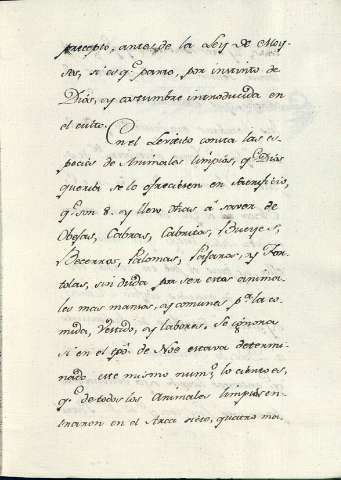 precepto, antes de la Ley de Moy-
ses, si es q.e parto, por instinto de
Dios, ey costumbre introducida en
el culto.
En el Levitico consta las es-
pecies de Animales limpios, q.e Dios
queria se lo ofreciesen en sacrificio,
q.e son 8. ey llevo dhas á saver de
Obejas, Cabras, Cabritos, Bueyes,
Becerros, Palomas, Pajaros, ey Tor-
tolas, sin duda por ser estos anima-
les mas mansos, ey comunes p.a la co-
mida, Vestido, ey labores. Se ignora
si en el tpo. de Noe estava determi-
nado este mismo num.o lo cierto es,
q.e de todos los Animales limpios en-
traron en el Arca siete, quatro ma-